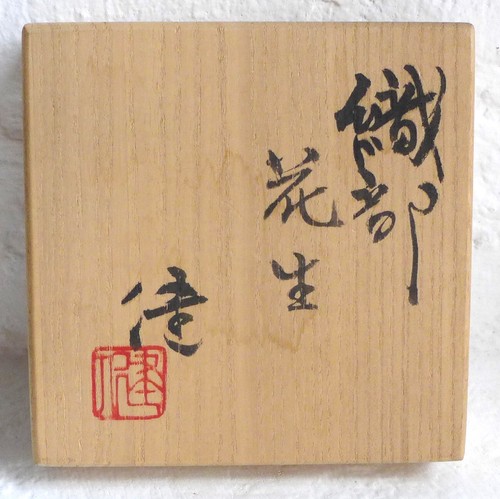 織部
花生
健